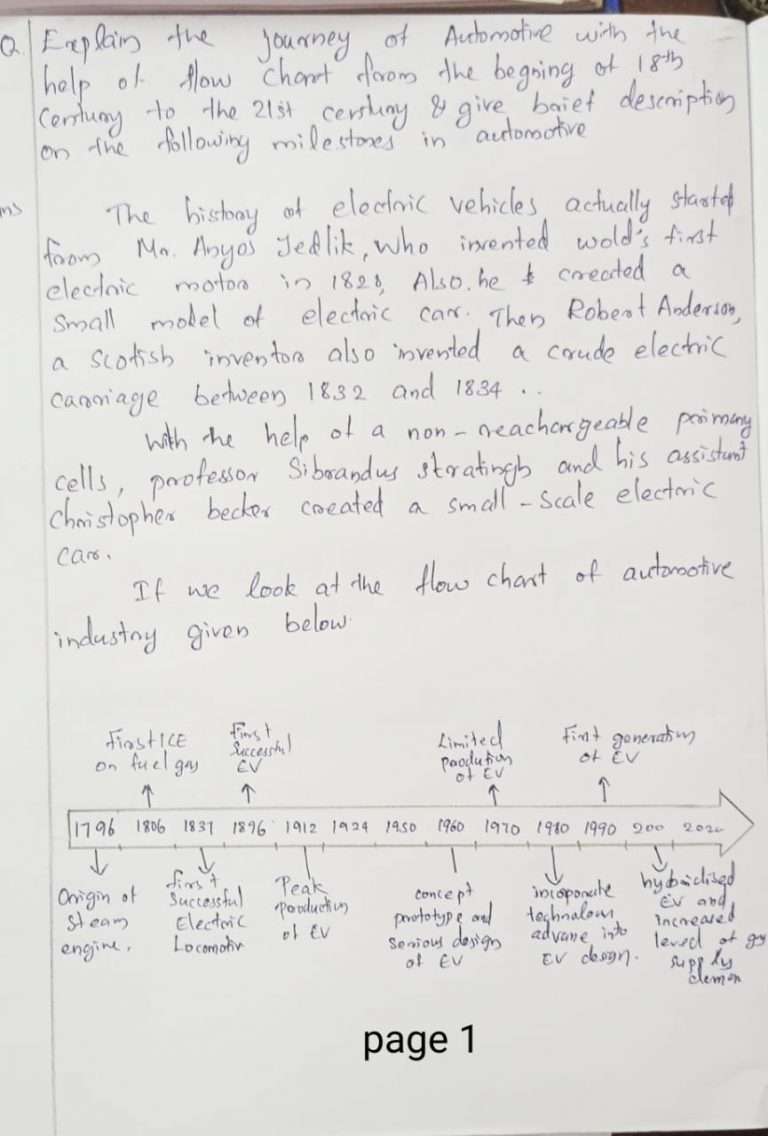 Q. Explain the journey of Automotive with the
help of flow chart from the begning of 18th
Century to the 21st century & give brief description
on the following milestones in automotive
ms
The history of electric vehicles actually started
from Mr. Anyos Jedlik, who invented wold's first
electric motor in 1828, Also he created a
small model of electric car. Then Robert Anderson,
a scotish inventor also invented a crude electric
carriage between 1832 and 1834 . .
With the help of a non-reachargeable primary
cells, professor Sibrandus stratingh and his assistant
Christopher becker created a small-scale electric
car.
If we look at the flow chart of automotive
industry given below.
First ICE
on fuel gas
First
Successful
EV
Limited
prodution
of EV
First generation
of EV
1796 1806 1837 1896 1912 1924 1950 1960 1970 1980 1990 200 2020
Origin of
steam
engine.
first
Successful
Electric
Locomotiv
Peak
production
of EV
concept
prototype and
serious design
of EV
incoporate
technalown
advane into
EV design.
hybridised
EV and
increased
level of gas
supply
deman
page 1